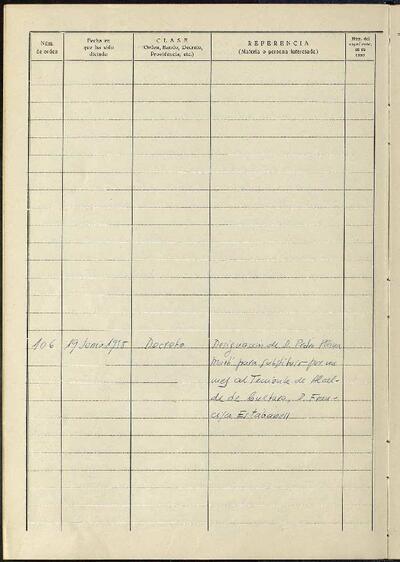 Núm. de orden
Fecha en que ha sido dictado
CLASE (Orden, Bando, Decreto, Providencia, etc.)
REFERENCIA (Materia o persona interesada)
Núm. del
106 19 Junio 1955 Decreto Designación de D. Pedro
para substituir por un
mes al Teniente de Alcal-
de de Cultura, D. Fran-
cisco Estabanell